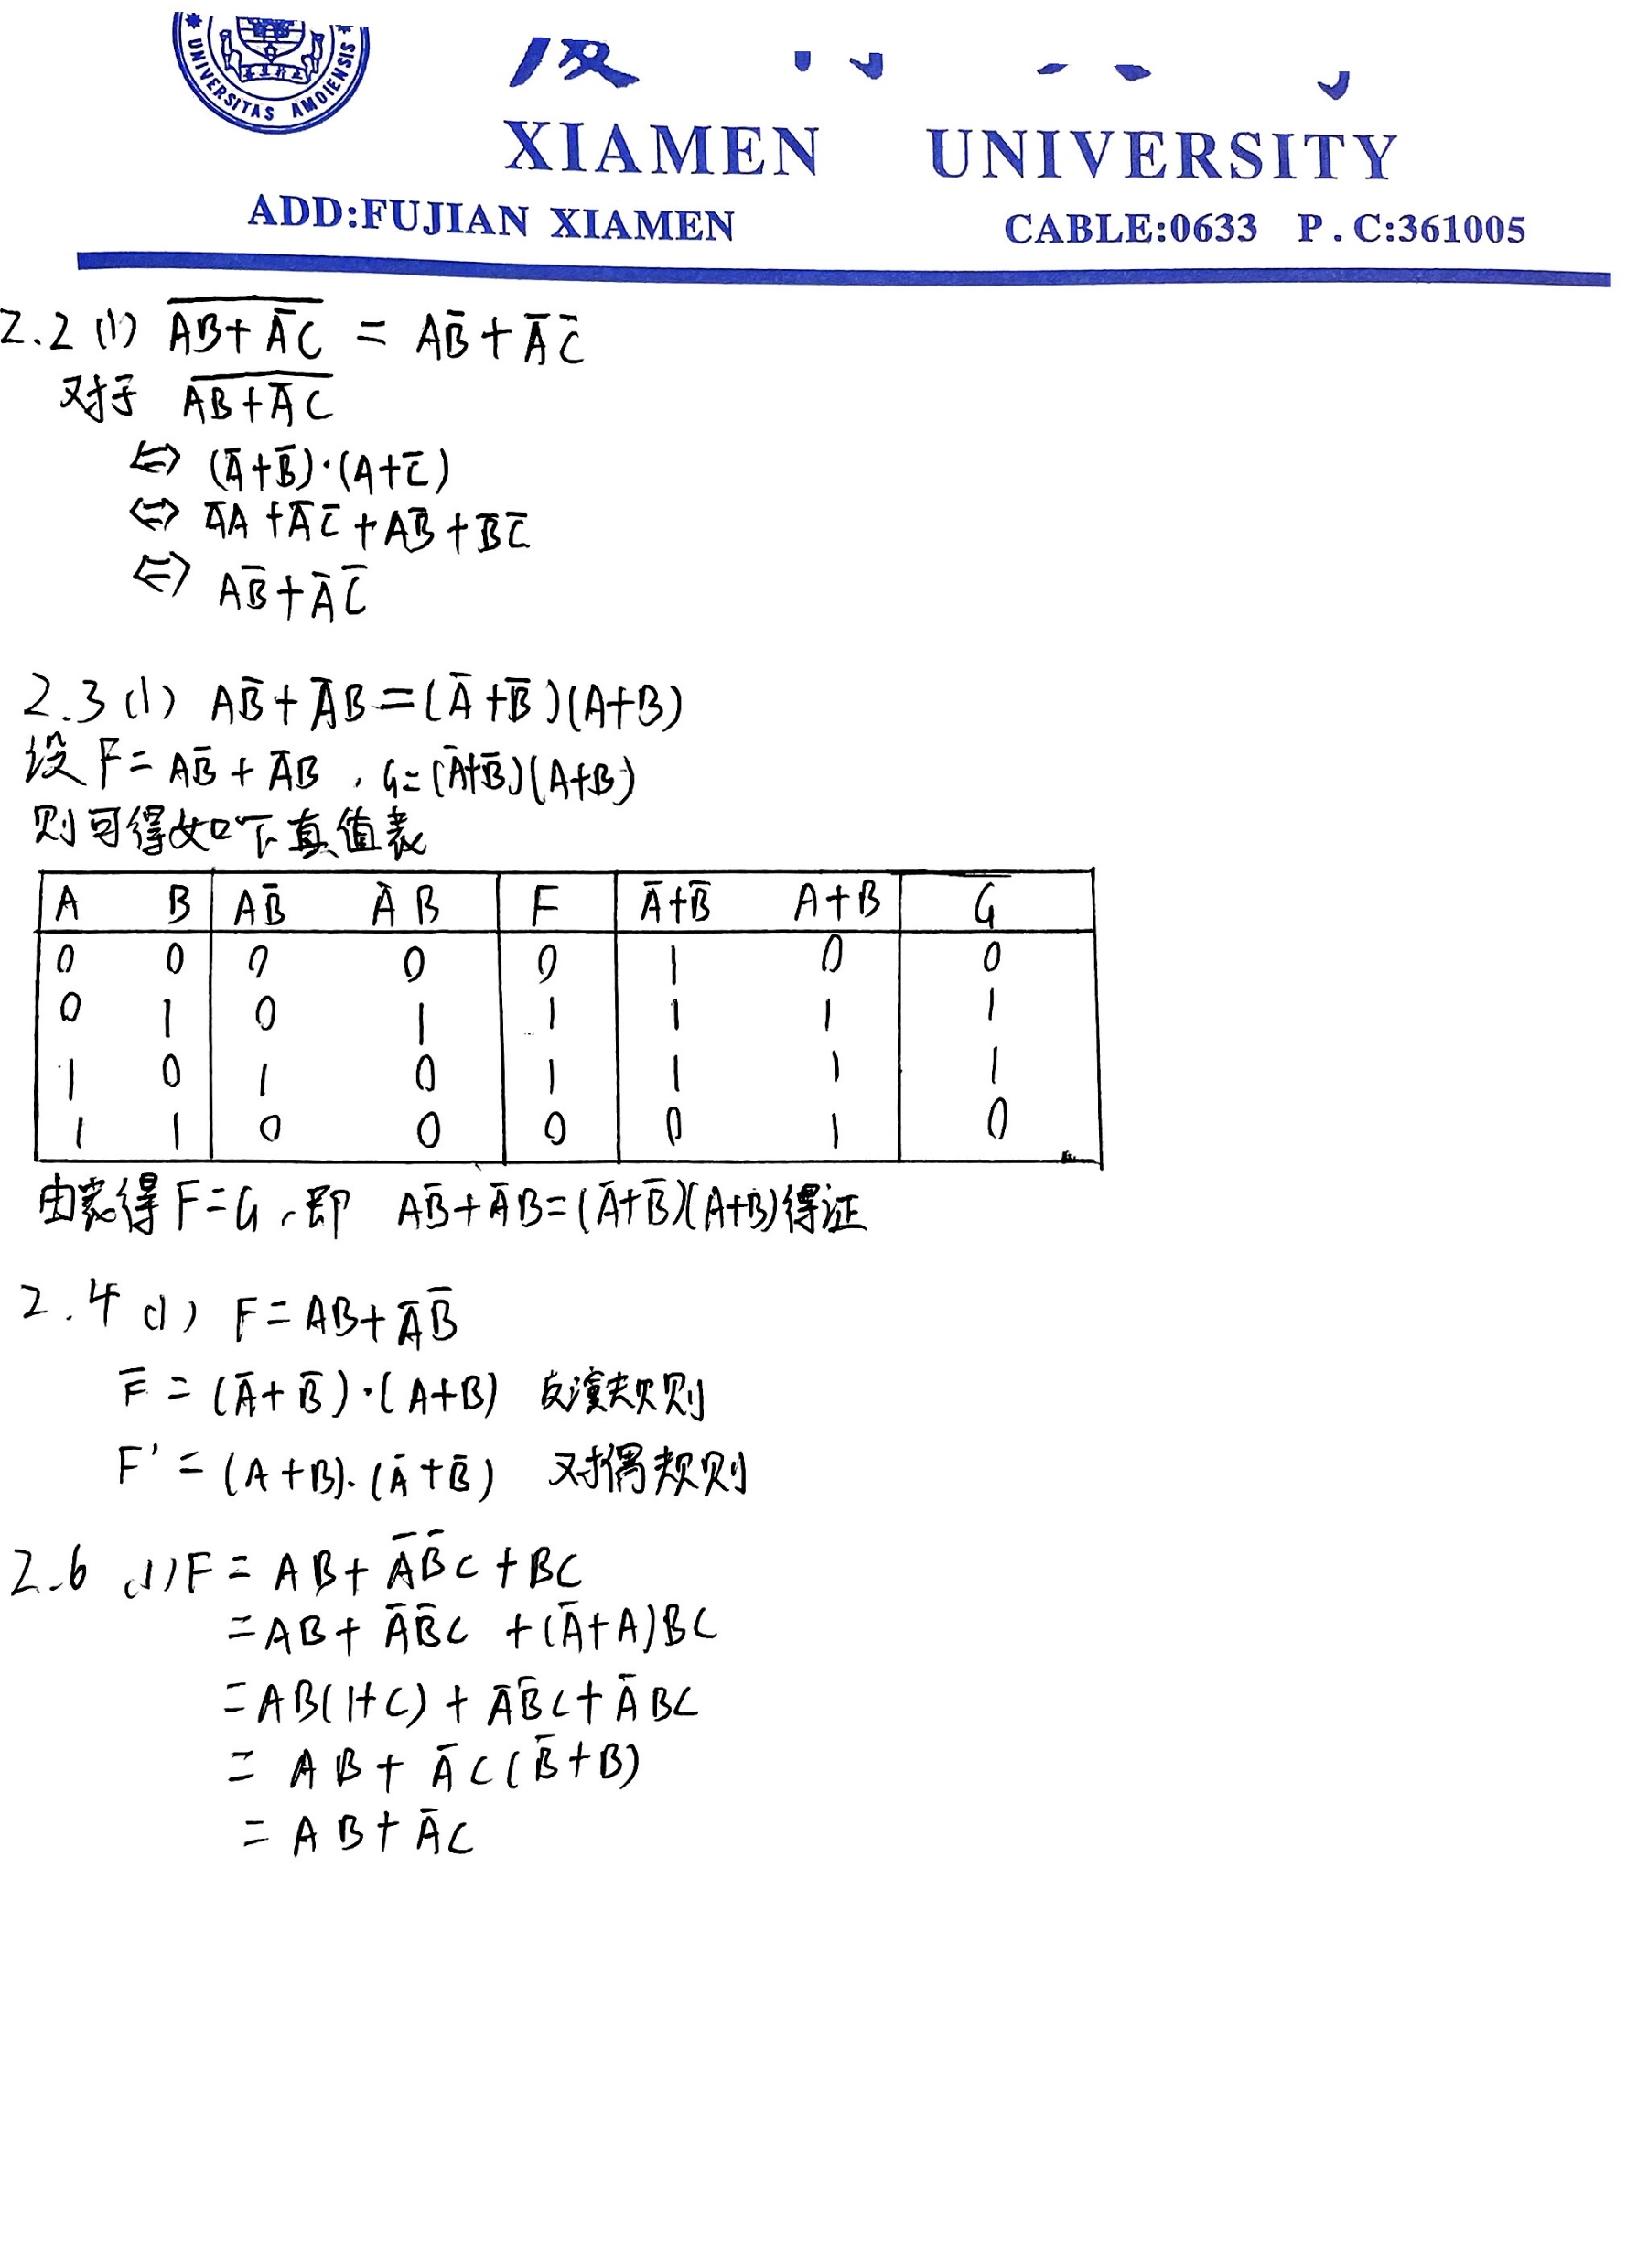 UNIVERSITAS AMOIENSIS
XIAMEN UNIVERSITY
ADD:FUJIAN XIAMEN CABLE:0633 P.C:361005
2.2 (1) \overline{AB+A̅C} = AB̅+A̅C̅
对于 \overline{AB+A̅C}
⇔ (A̅+B̅)·(A+C̅)
⇔ A̅A+A̅C̅+AB̅+B̅C̅
⇔ AB̅+A̅C̅
2.3 (1) AB̅+A̅B=(A̅+B̅)(A+B)
设 F=AB̅+A̅B, G=(A̅+B̅)(A+B)
则可得如下真值表
A B AB̅ A̅B F A̅+B̅ A+B G
0 0 0 0 0 1 0 0
0 1 0 1 1 1 1 1
1 0 1 0 1 1 1 1
1 1 0 0 0 0 1 0
由表得 F=G, 即 AB̅+A̅B=(A̅+B̅)(A+B)得证
2.4 (1) F=AB+A̅B̅
F̅=(A̅+B̅)·(A+B) 反演规则
F'=(A+B)·(A̅+B̅) 对偶规则
2.6 (1) F=AB+A̅B̅C+BC
=AB+A̅B̅C+(A̅+A)BC
=AB(1+C)+A̅B̅C+A̅BC
=AB+A̅C(B̅+B)
=AB+A̅C